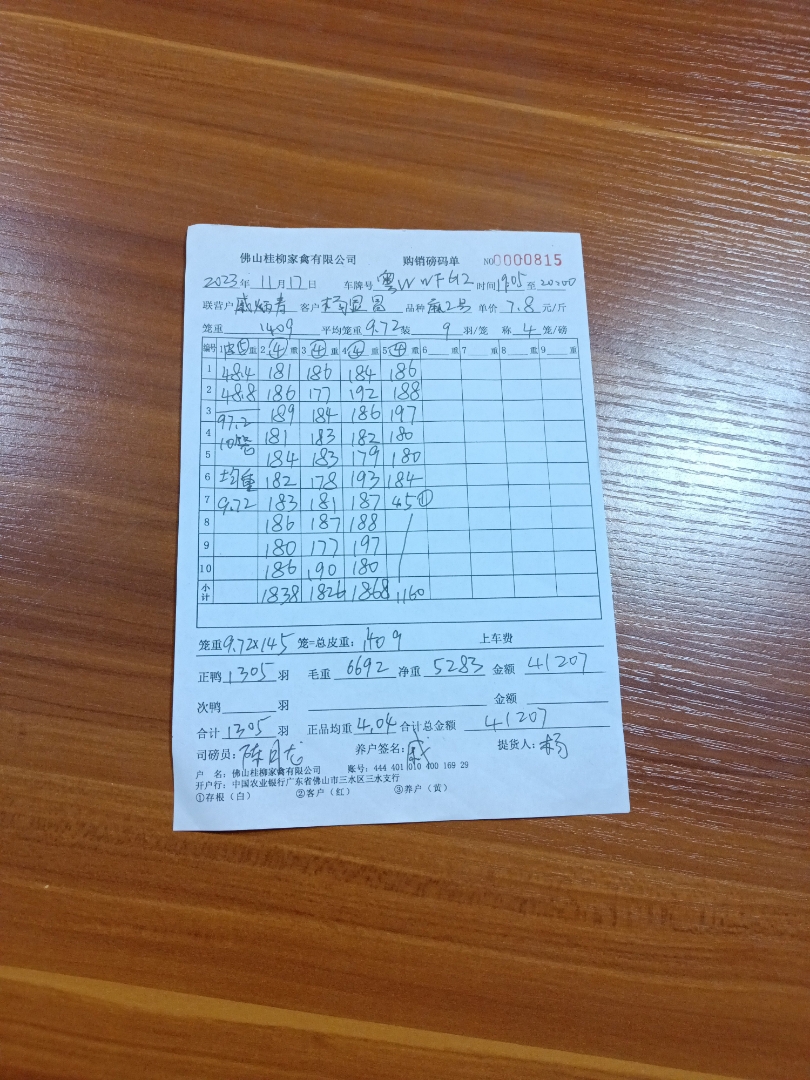 佛山桂柳家禽有限公司 购销磅码单 NO 0000815
2023年 11月17日 车牌号 粤W 时间 19:05 至 20:00
联营户 客户 杨显昌 品种 麻2号 单价 7.8 元/斤
笼重 1409 平均笼重 9.72 装 9 羽/笼 称 4 笼/磅
编号 1 重 2 ④ 重 3 ④ 重 4 ④ 重 5 ④ 重 6 重 7 重 8 重 9 重
1 48.4 181 186 184 186
2 48.8 186 177 192 188
3 97.2 189 184 186 197
4 10笼 181 183 182 180
5 184 183 179 180
6 均重 182 178 193 184
7 9.72 183 181 187 45①
8 186 187 188
9 180 177 197
10 186 190 180
小计 1838 1826 1868 1160
笼重 9.72×145 笼=总皮重: 1409 上车费
正鸭 1305 羽 毛重 6692 净重 5283 金额 41207
次鸭 羽 金额
合计 1305 羽 正品均重 4.04 合计总金额 41207
司磅员: 养户签名: 戚 提货人: 杨
户 名: 佛山桂柳家禽有限公司 账号: 444 401 010 400 169 29
开户行: 中国农业银行广东省佛山市三水区三水支行
①存根（白） ②客户（红） ③养户（黄）